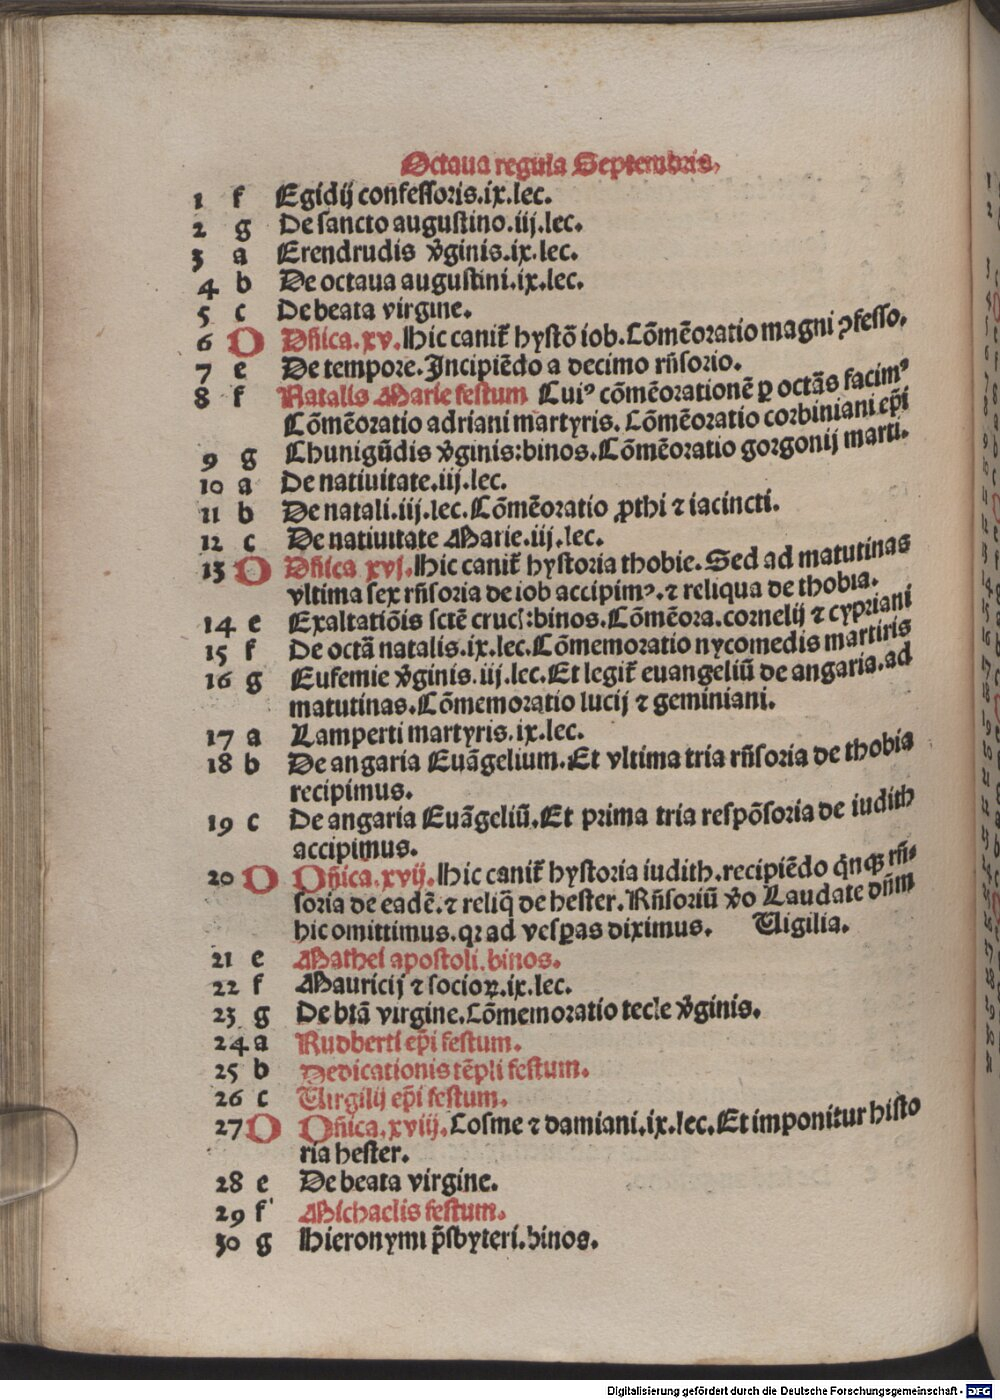 Octaua regula Septembris.
1 f Egidij confessoris.ix.lec.
2 g De sancto augustino.iij.lec.
3 a Erendrudis v̄ginis.ix.lec.
4 b De octaua augustini.ix.lec.
5 c De beata virgine.
6 D Dn̄ica.xv.Hic canit᷑ hystō iob.Cōmēoratio magni ꝯfesso.
7 e De tempore.Incipiēdo a decimo rn̄sorio.
8 f Natalis Marie festum Cuiꝰ cōmēorationē ꝑ octās facimꝰ
Cōmēoratio adriani martyris. Cōmēoratio corbiniani ep̄i
9 g Chunigūdis v̄ginis:binos.Cōmēoratio gorgonij marti.
10 a De natiuitate.iij.lec.
11 b De natali.iij.lec.Cōmēoratio ꝓthi ⁊ iacincti.
12 c De natiuitate Marie.iij.lec.
13 D Dn̄ica xvj.Hic canit᷑ hystoria thobie.Sed ad matutinas
vltima sex rn̄soria de iob accipimꝰ.⁊ reliqua de thobia.
14 e Exaltatiōis sctē cruc̄:binos.Cōmēora.cornelij ⁊ cypriani
15 f De octā natalis.ix.lec.Cōmemoratio nycomedis martiris
16 g Eufemie v̄ginis.iij.lec.Et legit᷑ euangeliū de angaria.ad
matutinas.Cōmemoratio lucij ⁊ geminiani.
17 a Lamperti martyris.ix.lec.
18 b De angaria Euāgelium.Et vltima tria rn̄soria de thobia
recipimus.
19 c De angaria Euāgeliū.Et prima tria respōsoria de iudith
accipimus.
20 D Dn̄ica.xvij.Hic canit᷑ hystoria iudith.recipiēdo q̄nqꝫ rn̄-
soria de eadē.⁊ reliq̄ de hester.Rn̄soriū v̄o Laudate dn̄m
hic omittimus.qꝛ ad vesꝑas diximus. Vigilia.
21 e Mathei apostoli.binos.
22 f Mauricij ⁊ socioꝝ.ix.lec.
23 g De btā virgine.Cōmemoratio tecle v̄ginis.
24 a Rudberti ep̄i festum.
25 b Dedicationis tēpli festum.
26 c Virgilij ep̄i festum.
27 D Dn̄ica.xviij.Cosme ⁊ damiani.ix.lec.Et imponitur histo
ria hester.
28 e De beata virgine.
29 f Michaelis festum.
30 g Hieronymi p̄sbyteri.binos.
Digitalisierung gefördert durch die Deutsche Forschungsgemeinschaft - DFG